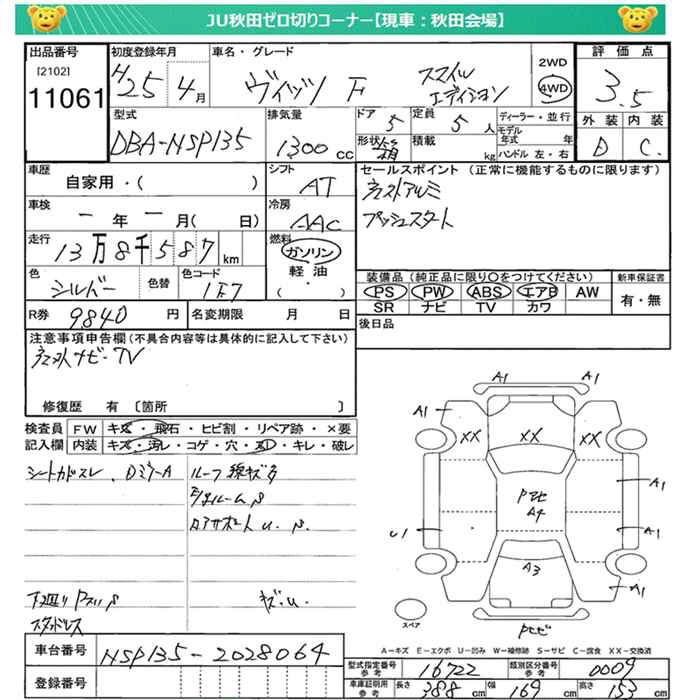 JU秋田ゼロ切りコーナー【現車：秋田会場】
出品番号 初度登録年月 車名・グレード 2WD 評価点
[2102] H25 4月 ヴィッツ F スマイルエディション 4WD 3.5
11061
型式 排気量 ドア 定員 ディーラー・並行 外装 内装
DBA-NSP135 1300cc 5 5人 モデル年式 年 D C
形状 積載 kg ハンドル 左・右
車歴 シフト セールスポイント (正常に機能するものに限ります)
自家用・( ) AT 社外アルミ
車検 冷房 プッシュスタート
一年一月( 日) AAC
走行 燃料
13万8千587km ガソリン
軽油
色 色替 色コード ・( )
シルバー 1F7
装備品 (純正品に限り○をつけてください) 新車保証書
PS PW ABS エアB AW 有・無
SR ナビ TV カワ
R券 9840円 名変期限 月 日
後日品
注意事項申告欄(不具合内容等は具体的に記入して下さい)
社外ナビ-TV
修復歴 有 〔箇所 〕
検査員 FW キズ・飛石・ヒビ割・リペア跡・×要
記入欄 内装 キズ・汚レ・コゲ・穴・スレ・キレ・破レ
シートカドスレ、Dミラー A ルーフ線キズ多
下廻りP
スタッドレス
A1 A1
A1 XX XX XX
A1
Pとせ
A4
U1 A1
A3
A1
スペア
Pとせ
A-キズ E-エクボ U-凹み W-補修跡 S-サビ C-腐食 XX-交換済
車台番号 NSP135-2028064
登録番号
型式指定番号 参考 16722 類別区分番号 参考 0009
車庫証明用 参考 長さ 388cm 幅 169cm 高さ 153cm